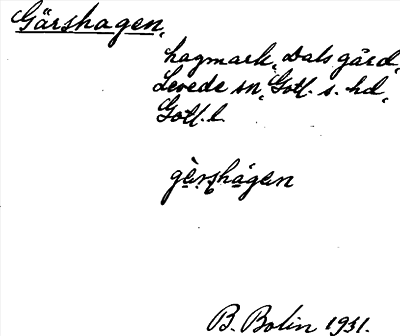 Gärshagen,
hagmark, Dals gård,
Levede sn, Gotl. s. hd,
Gotl. l.
gè̱rs̨há̱gen
B. Bolin 1931.